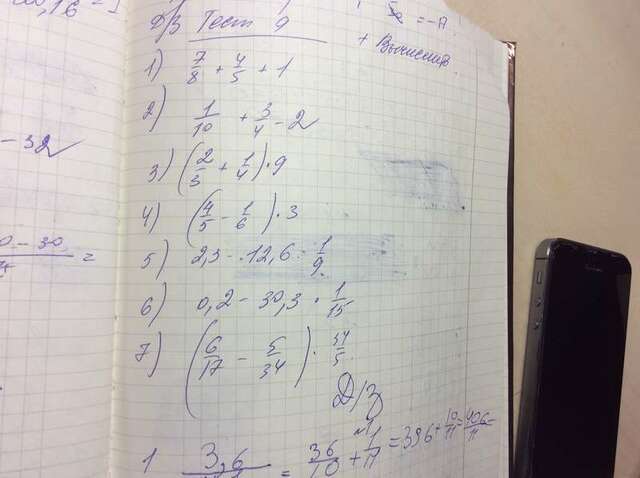 Д/З Тест 9
+ Вычислить
1) 7/8 + 4/5 + 1
2) 1/10 + 3/4 - 2
3) (2/3 + 1/4) · 9
4) (4/5 - 1/6) · 3
5) 2,3 - 12,6 · 1/9
6) 0,2 - 30,3 · 1/15
7) (6/17 - 5/34) · 34/5
Д/З
- 32
- 30 =
1 3,6 = 36/10 + 1/11 = 396 + 10/11 = 406/11 =